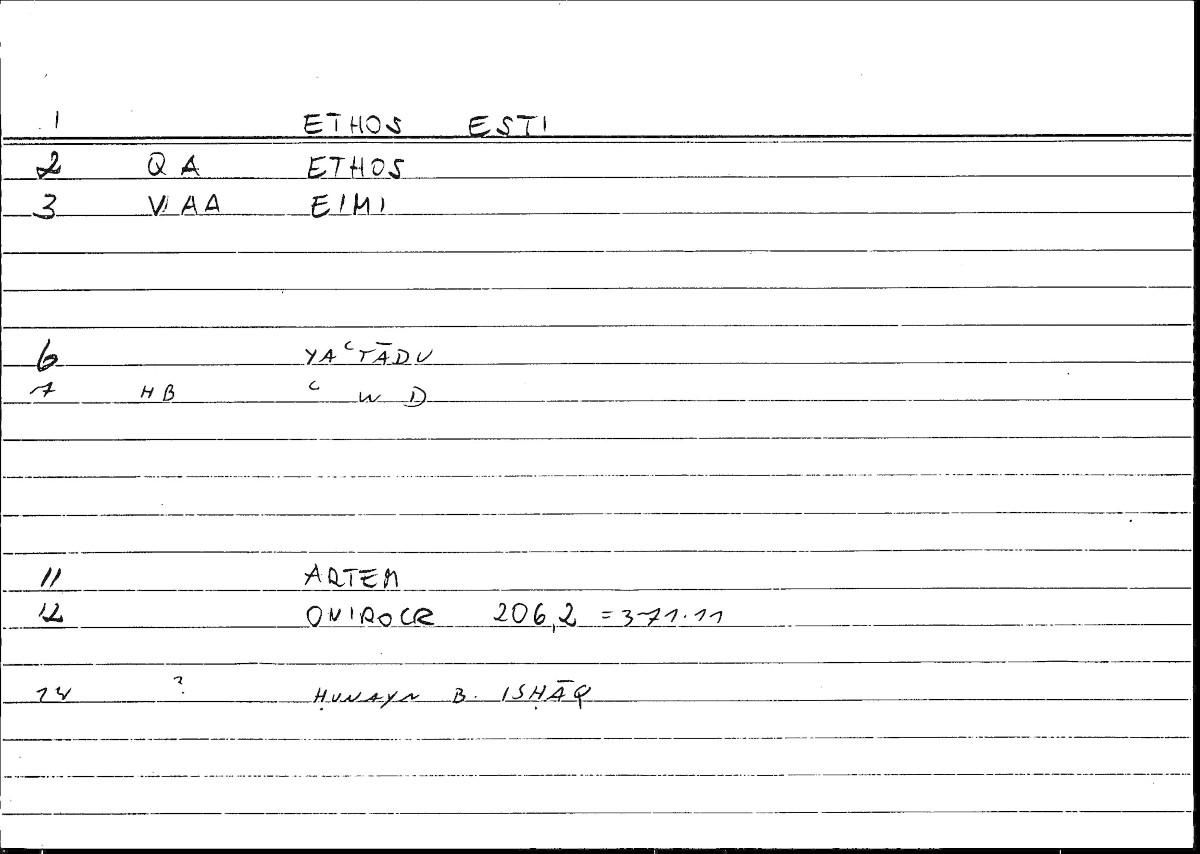 1 ETHOS ESTI
2 QA ETHOS
3 VAA EIMI
6 YAʿTĀDU
7 HB ʿ W D
11 ARTEM
12 ONIROCR 206,2 = 371.11
14 ? ḤUNAYN B. ISḤĀQ